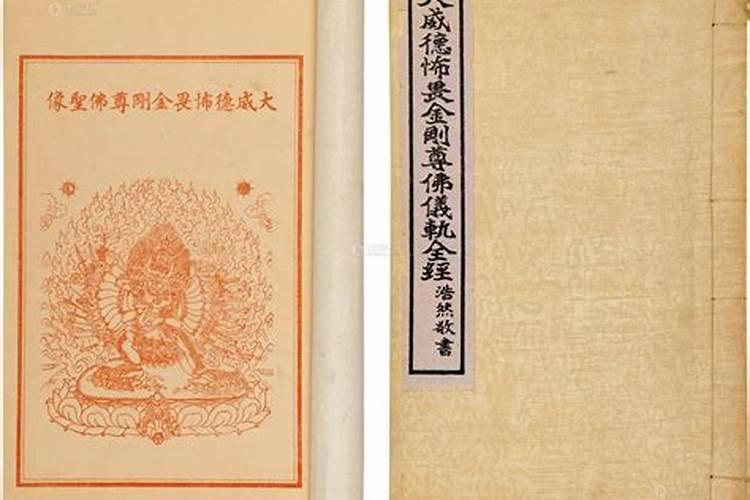 大威德怖畏金剛尊佛聖像
大威德怖畏金剛尊佛儀軌全經
浩然敬書